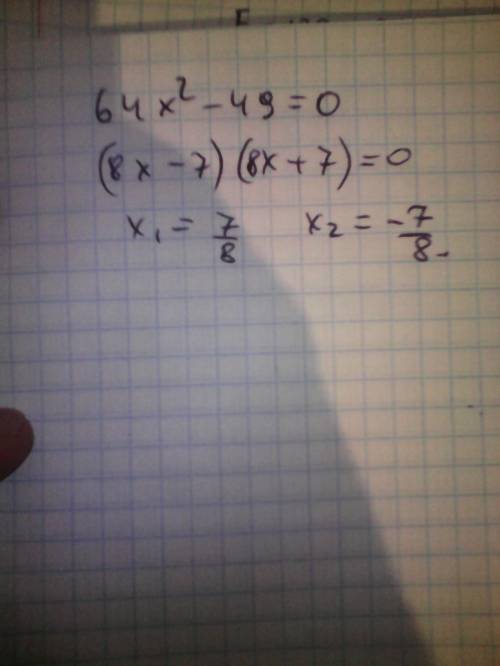 64x² - 49 = 0
(8x - 7)(8x + 7) = 0
x₁ = 7/8 x₂ = -7/8.